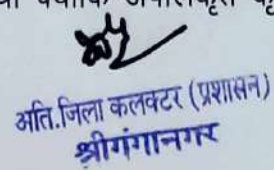 क्योंकि
अति.जिला कलक्टर (प्रशासन)
श्रीगंगानगर